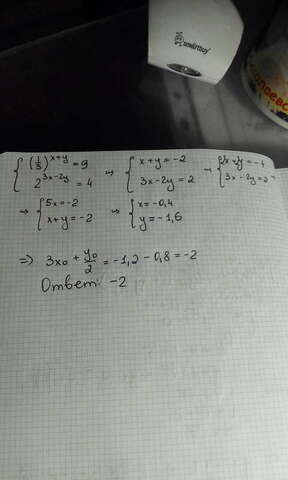 smartbuy
{ (1/3)^(x+y) = 9 → { x+y = -2 → { 2x+2y = -4
{ 2^(3x-2y) = 4 { 3x-2y = 2 { 3x-2y = 2 →
→ { 5x = -2 → { x = -0,4
{ x+y = -2 { y = -1,6
⇒ 3x₀ + y₀/2 = -1,2 - 0,8 = -2
Ответ: -2